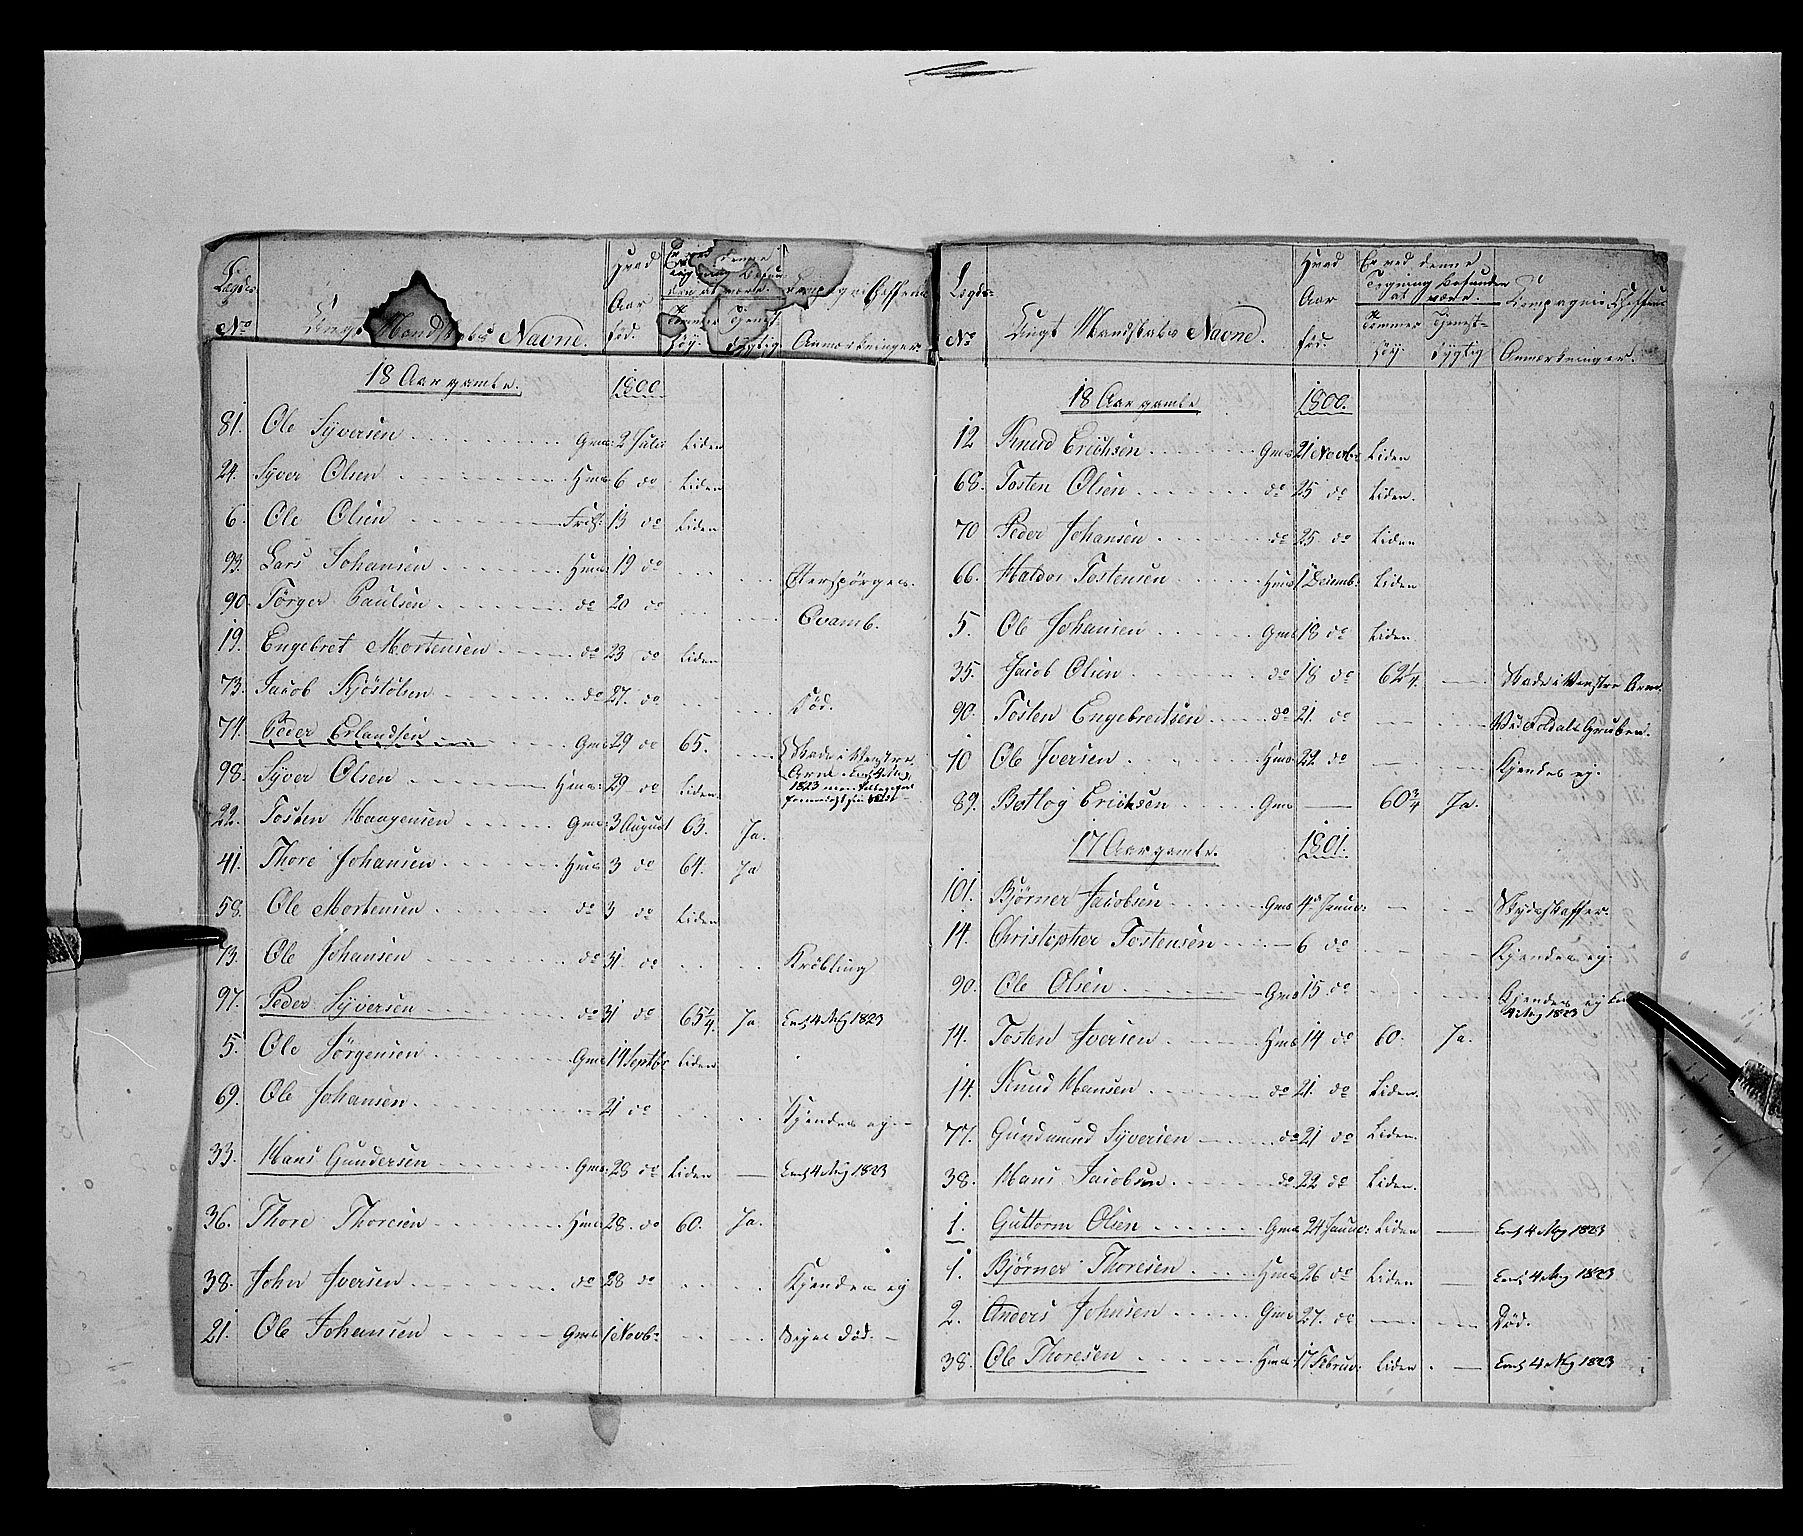 Lægds- No
Ungt Mandskabs Navne.
Hvad Aar fød.
Er ved denne Tegning befunden at være.
Tommer høy.
Tjenst-dygtig
Compagnie Cheffens Anmærkninger.
18 Aar gamle. 1800.
81. Ole Syversen Gms: 2 Julii Liden
24. Syver Olsen Hms: 6 do Liden
6. Ole Olsen 13 do Liden
93. Lars Johansen Hms: 19 do
90. Törger Paulsen do 20 do Qvamb.
19. Engebret Mortensen do 23 do Liden
73. Jacob Kjöstolsen do 27. do Död.
74. Peder Erlandsen Gms 29 do 65. Skade i Venstre Arm 1823
98. Syver Olsen Hms: 29 do Liden
22. Tosten Haagensen Gms: 3 August 63. Ja.
41. Thore Johansen Hms 3 do 64. Ja
58. Ole Mortensen do 3 do Liden
73. Ole Johansen do 31. do Kröbling
97. Peder Syversen do 31 do 65 1/4. Ja. 4 1823
5. Ole Jörgensen Gms 14 Septbr Liden
69. Ole Johansen 21 do Kjendes ej.
33. Hans Gundersen Gms: 28 do Liden 4 1823
36. Thore Thoresen Hms 28. do 60. Ja.
38. John Iversen do 28 do Kjendes ej
21. Ole Johansen Gms 1 Novbr död.
Lægds- No
Ungt Mandskabs Navne.
Hvad Aar fød.
Er ved denne Tegning befunden at være.
Tommer høy.
Tjenst-dygtig
Compagnie Cheffens Anmærkninger.
18 Aar gamle 1800.
12 Knud Erichsen Gms 21 Novbr Liden
68. Tosten Olsen do 25 do Liden.
70 Peder Johansen do 25 do Liden
66. Haldor Tostensen Hms 1 Decemb: Liden
5. Ole Johansen Gms 18 do Liden.
35. Jacob Olsen do 18 do 62 1/4. Skade i Venstre Arm.
90. Tosten Engebretsen do 21. do Ved Foldals Gruben.
10 Ole Iversen Hms 22 do Kjendes ej.
89. Botlog Erichsen Gms 60 3/4 Ja.
17 Aar gamle. 1801.
101. Bjørner Jacobsen Gms 4 Januar: Skydsskaffer.
14. Christopher Tostensen 6 do Kjendes ej.
90. Ole Olsen Gms 15 do Kjendes ej 4 1823
14. Tosten Iversen Hms 14 do 60. Ja.
14. Knud Hansen do 21. do Liden.
77. Gundmund Syversen do 21 do Liden.
38. Hans Jacobsen do 22 do Liden.
1. Guttorm Olsen Gms 24 Januar: Liden 4 1823
1. Bjørner Thoresen Hms 26 do Liden 4 1823
2. Anders Johnsen Gms 27. do Död.
38. Ole Thoresen Hms 17 Februar: Liden 4 1823